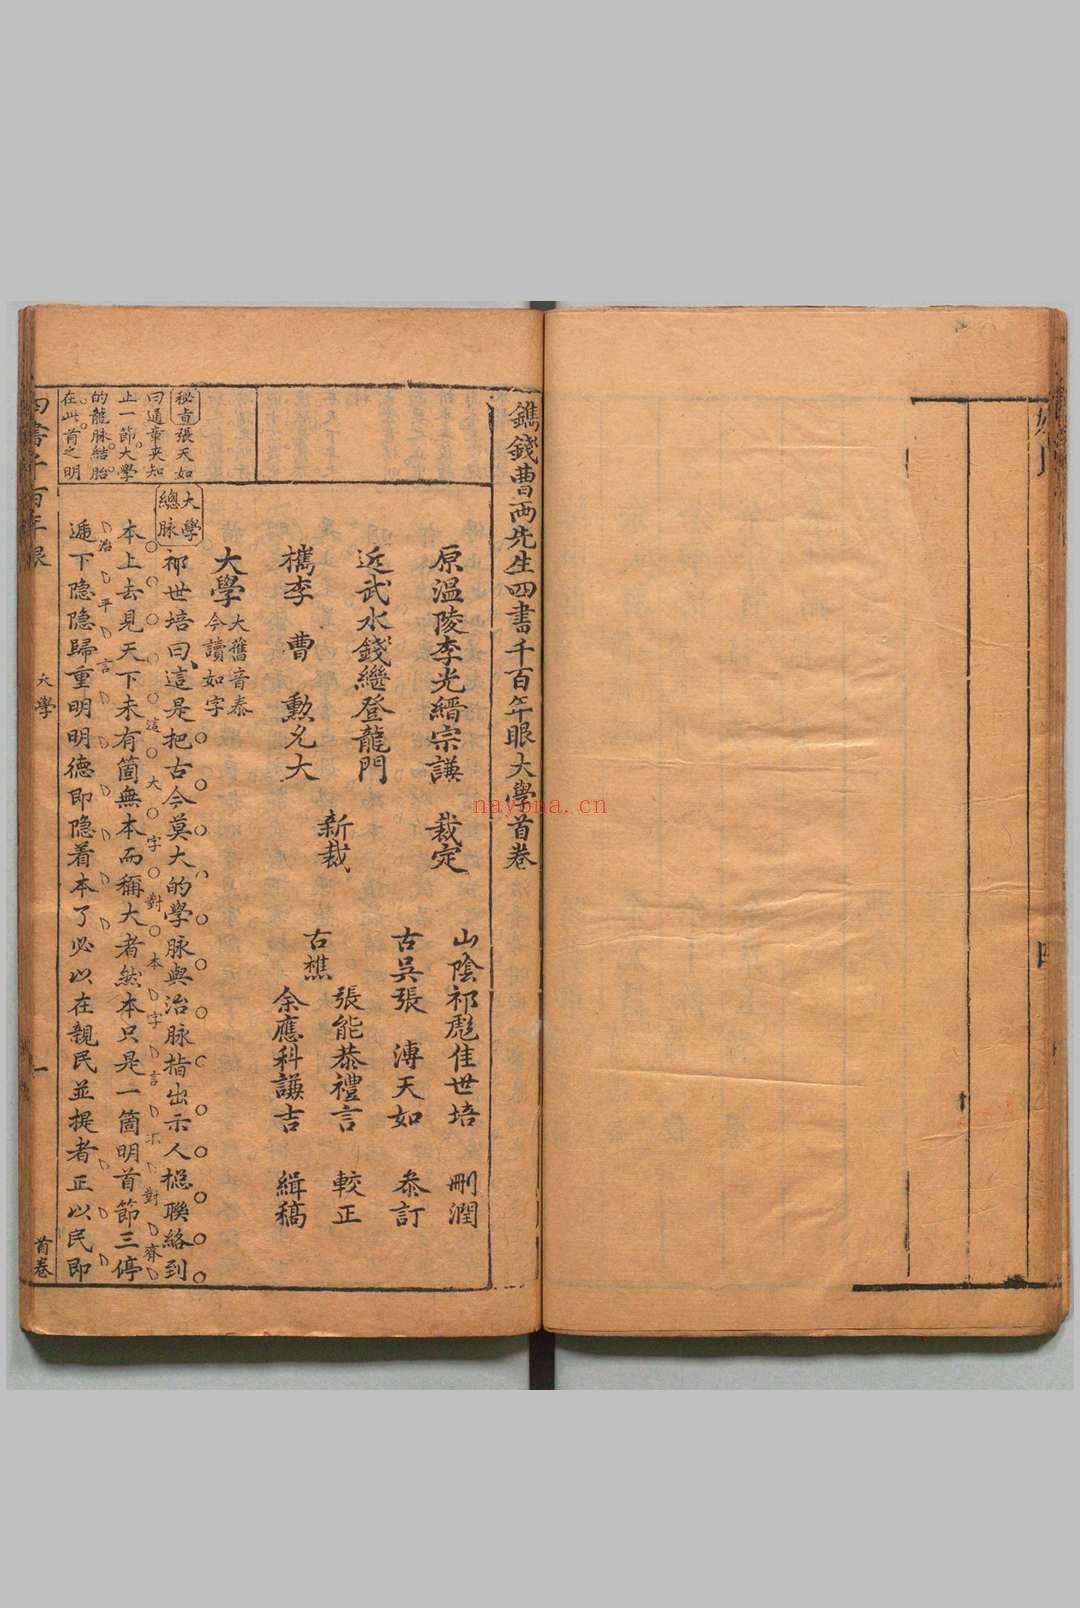 鐫錢曹兩先生四書千百年眼大學首卷
原溫陵李光縉宗謙 裁定
近武水錢繼登龍門
檇李 曹 勲允大
新裁
山陰祁彪佳世培 刪潤
古吳張 溥天如 叅訂
古樵
張能恭禮言 較正
余應科謙吉 緝稿
大學
大舊音泰
今讀如字
大學
總脉
祁世培曰這是把古今莫大的學脉與治脉指出示人摠聯絡到
本上去見天下未有箇無本而稱大者然本只是一箇明首節三停
遞下隐隐歸重明明德即隐着本了必以在親民並提者正以民即
這大字對本字言不對齊
治平言
秘旨張天如
曰通章夾知
止一節大學
的龍脉結胎
在此首之明
四書千百年眼
大學
一
首卷
nayona.cn